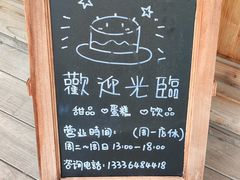 歡迎光臨
甜品♡蛋糕♡饮品
营业时间：(周一店休)
周二~周日 13:00-18:00
咨询电话：13336484418